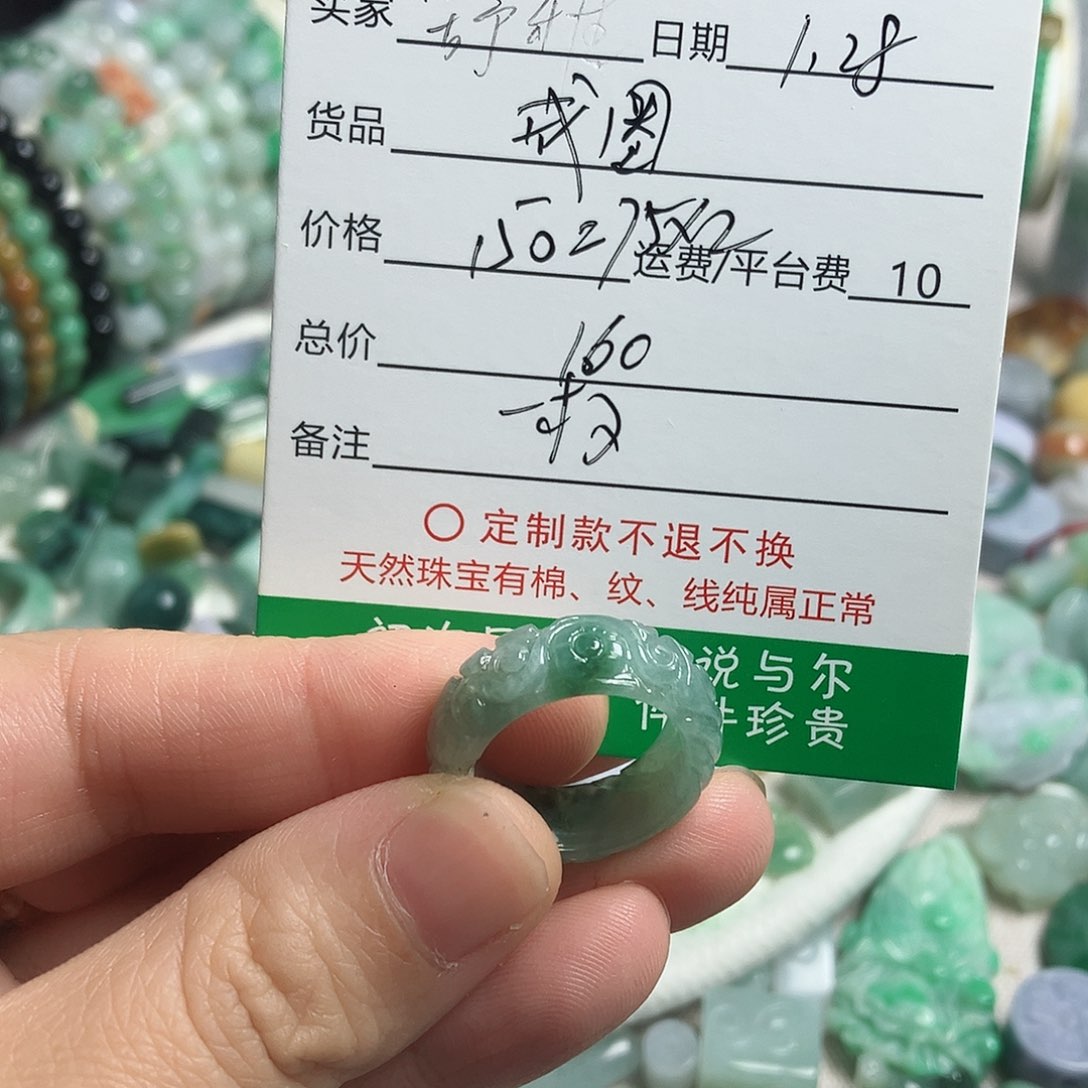 买家
日期 1.28
货品 戒圈
价格 150
运费/平台费 10
总价 160
备注
〇 定制款不退不换
天然珠宝有棉、纹、线纯属正常
说与尔
件件珍贵